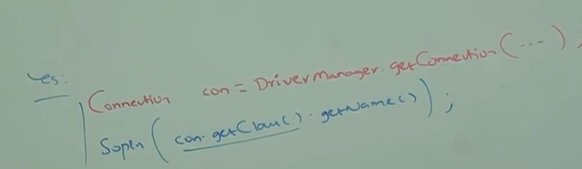 Yes:
Connection con = DriverManager.getConnection(---);
Sopln(con.getClass().getName());